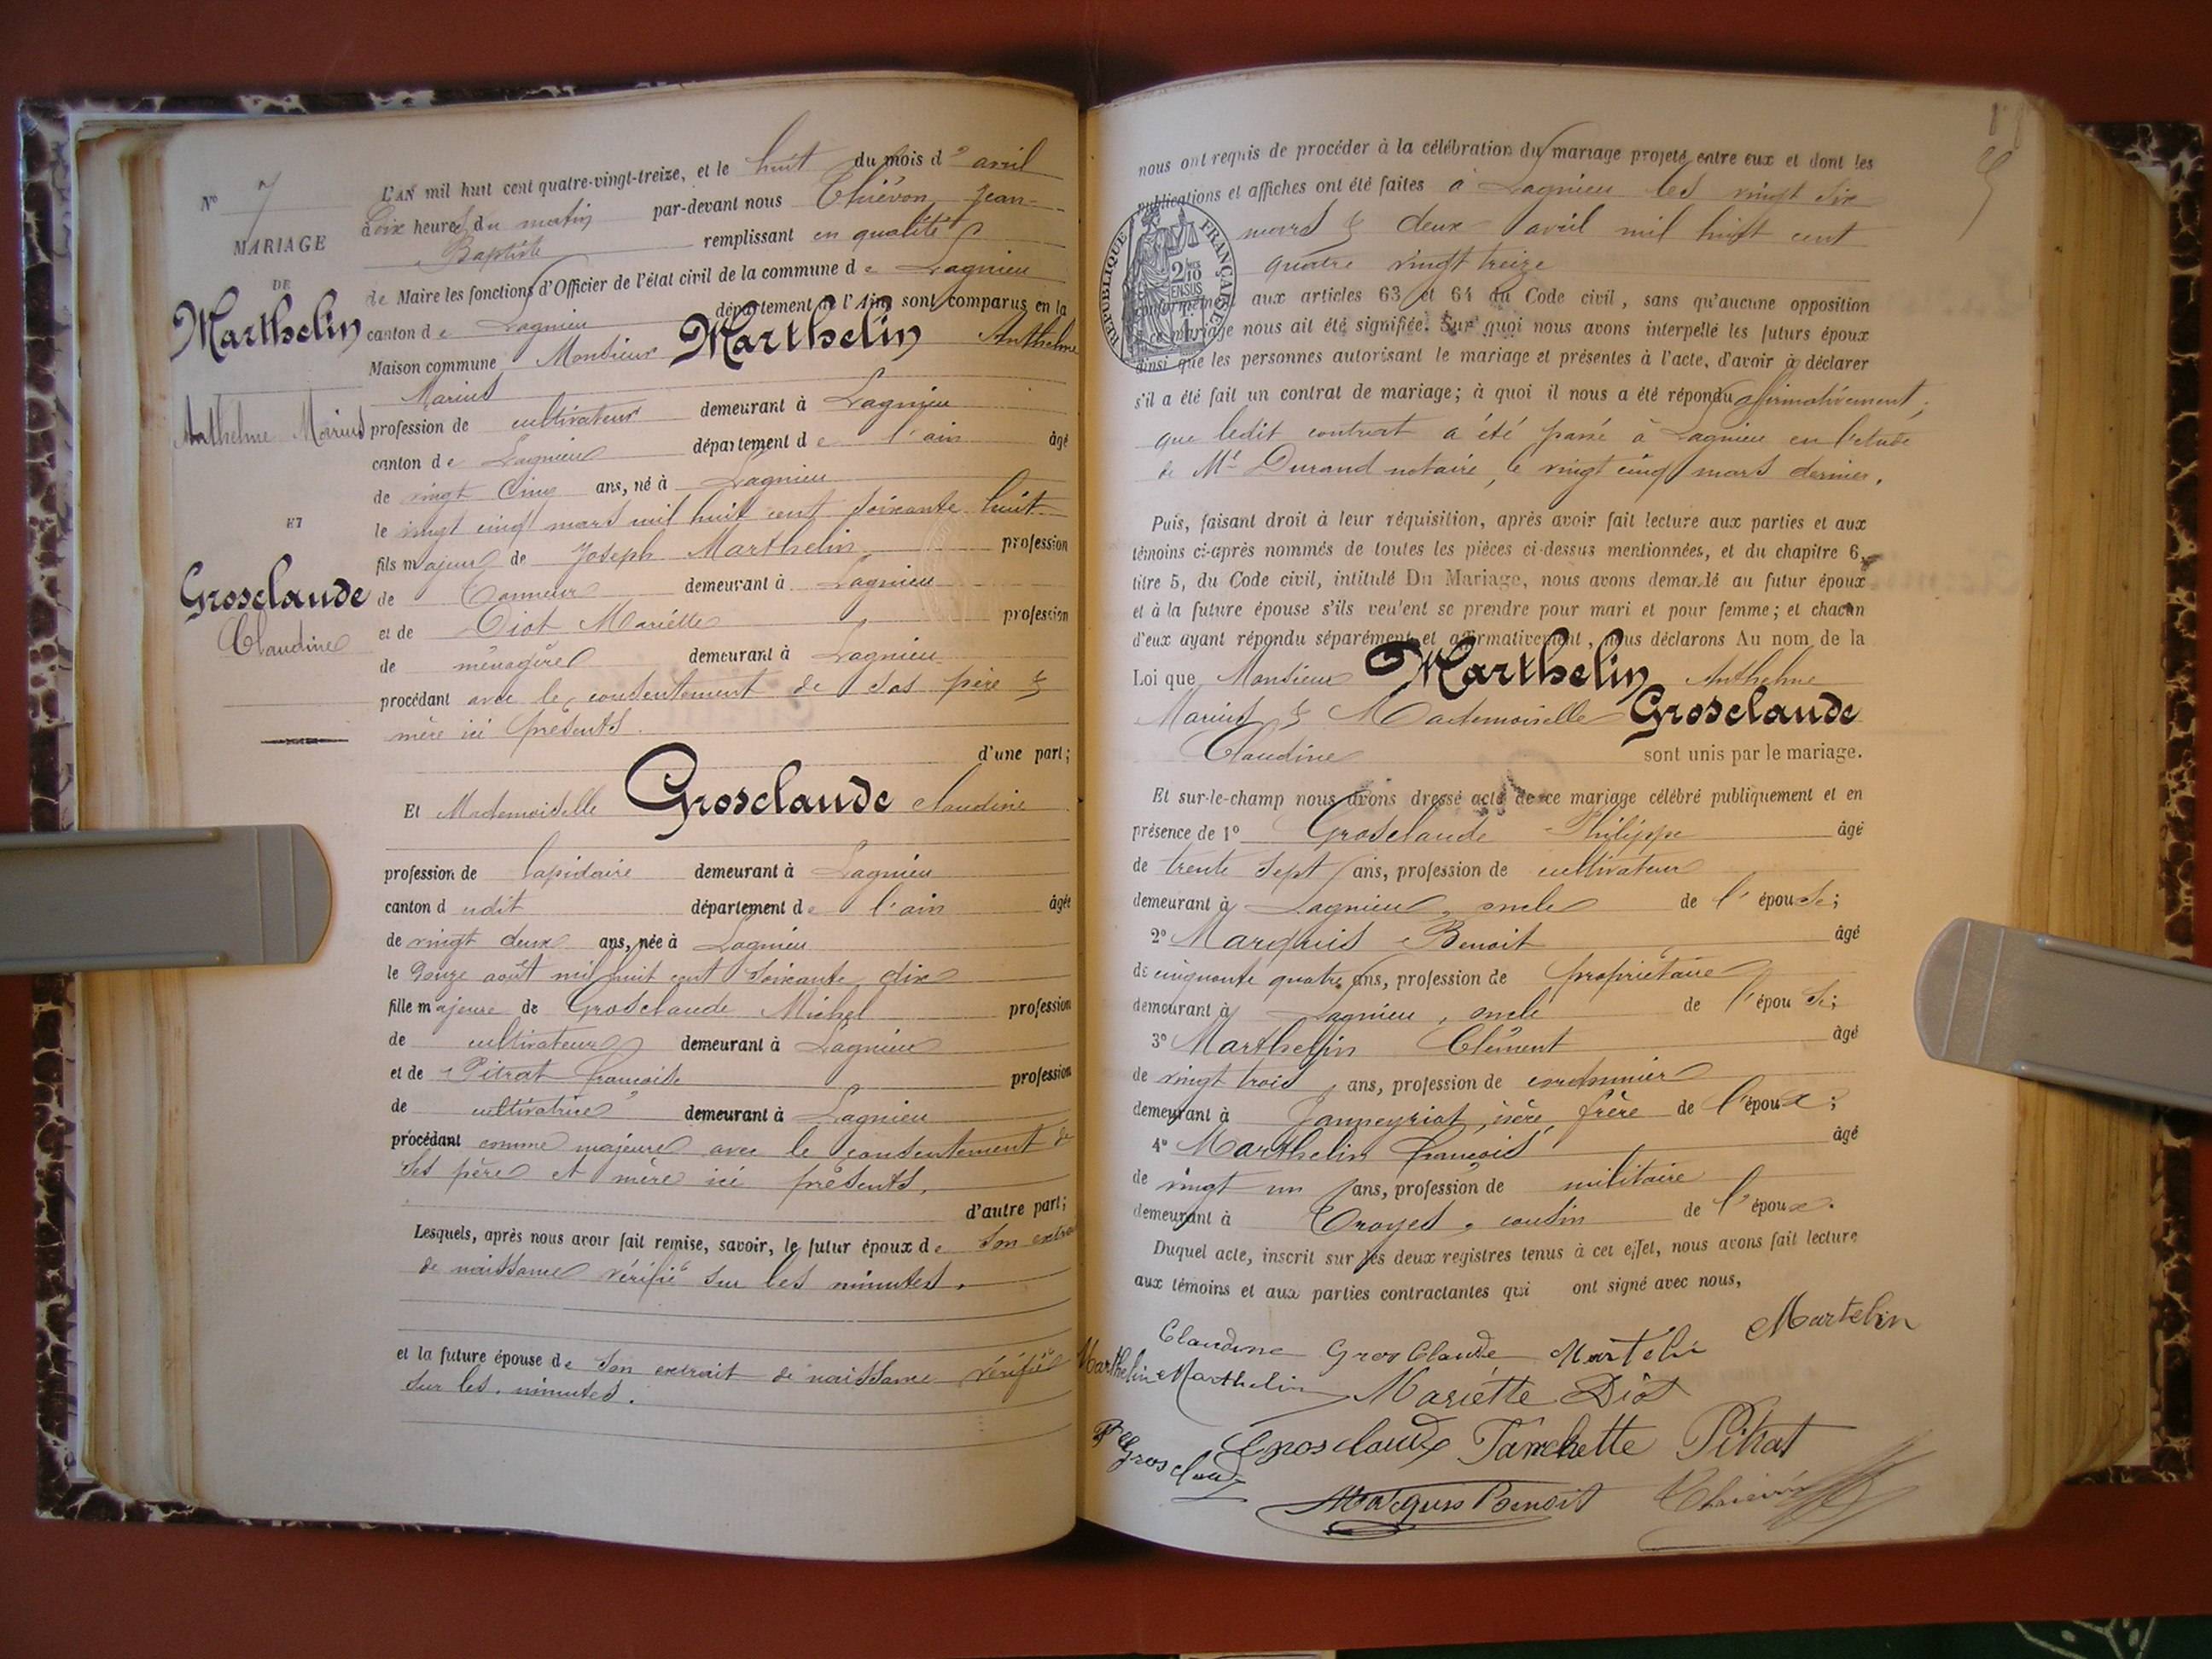 N° 7
MARIAGE
DE
Marthelin
Anthelme Marius
ET
Grosclaude
Claudine
L'AN mil huit cent quatre-vingt-treize, et le huit du mois d' avril
à dix heures du matin par-devant nous Thiévon Jean-
Baptiste remplissant en qualité
de Maire les fonctions d'Officier de l'état civil de la commune de Lagnieu
canton de Lagnieu département de l'Ain sont comparus en la
Maison commune Monsieur Marthelin Anthelme
Marius
profession de cultivateur demeurant à Lagnieu
canton de Lagnieu département de l'ain âgé
de vingt cinq ans, né à Lagnieu
le vingt cinq mars mil huit cent soixante huit
fils majeur de Joseph Marthelin profession
de Tanneur demeurant à Lagnieu
et de Diot Mariette profession
de ménagère demeurant à Lagnieu
procédant avec le consentement de ses père &
mère ici présents.
d'une part;
Et Mademoiselle Grosclaude Claudine
profession de lapidaire demeurant à Lagnieu
canton dudit département de l'ain âgée
de vingt deux ans, née à Lagnieu
le douze août mil huit cent soixante dix
fille majeure de Grosclaude Michel profession
de cultivateur demeurant à Lagnieu
et de Pitrat françoise profession
de cultivatrice demeurant à Lagnieu
procédant comme majeure avec le consentement de
ses père et mère ici présents,
d'autre part;
Lesquels, après nous avoir fait remise, savoir, le futur époux de son extrait
de naissance vérifié sur les minutes.
et la future épouse de son extrait de naissance vérifié
sur les minutes.
nous ont requis de procéder à la célébration du mariage projeté entre eux et dont les
publications et affiches ont été faites à Lagnieu les vingt six
mars & deux avril mil huit cent
quatre vingt treize
conformément aux articles 63 et 64 du Code civil, sans qu'aucune opposition
à ce mariage nous ait été signifiée. Sur quoi nous avons interpellé les futurs époux
ainsi que les personnes autorisant le mariage et présentes à l'acte, d'avoir à déclarer
s'il a été fait un contrat de mariage; à quoi il nous a été répondu affirmativement,
que ledit contrat a été passé à Lagnieu en l'étude
de Me Durand notaire, le vingt cinq mars dernier.
REPUBLIQUE FRANÇAISE
2/10 EN SUS
Puis, faisant droit à leur réquisition, après avoir fait lecture aux parties et aux
témoins ci-après nommés de toutes les pièces ci-dessus mentionnées, et du chapitre 6,
titre 5, du Code civil, intitulé Du Mariage, nous avons demandé au futur époux
et à la future épouse s'ils veulent se prendre pour mari et pour femme; et chacun
d'eux ayant répondu séparément et affirmativement, nous déclarons Au nom de la
Loi que Monsieur Marthelin Anthelme
Marius & Mademoiselle Grosclaude
Claudine sont unis par le mariage.
Et sur-le-champ nous avons dressé acte de ce mariage célébré publiquement et en
présence de 1° Grosclaude Philippe âgé
de trente sept ans, profession de cultivateur
demeurant à Lagnieu, oncle de l'épouse;
2° Marquis Benoit âgé
de cinquante quatre ans, profession de propriétaire
demeurant à Lagnieu, oncle de l'épouse;
3° Marthelin Clément âgé
de vingt trois ans, profession de cordonnier
demeurant à Janneyriat, isère, frère de l'époux;
4° Marthelin françois âgé
de vingt un ans, profession de militaire
demeurant à Troyes, cousin de l'époux.
Duquel acte, inscrit sur les deux registres tenus à cet effet, nous avons fait lecture
aux témoins et aux parties contractantes qui ont signé avec nous,
Claudine Gros Claude Martelin Martelin
Marthelin Marthelin Mariétte Diot
Pre Grosclaude Grosclaude Fanchette Pitrat
Marquis Benoit Thiévon